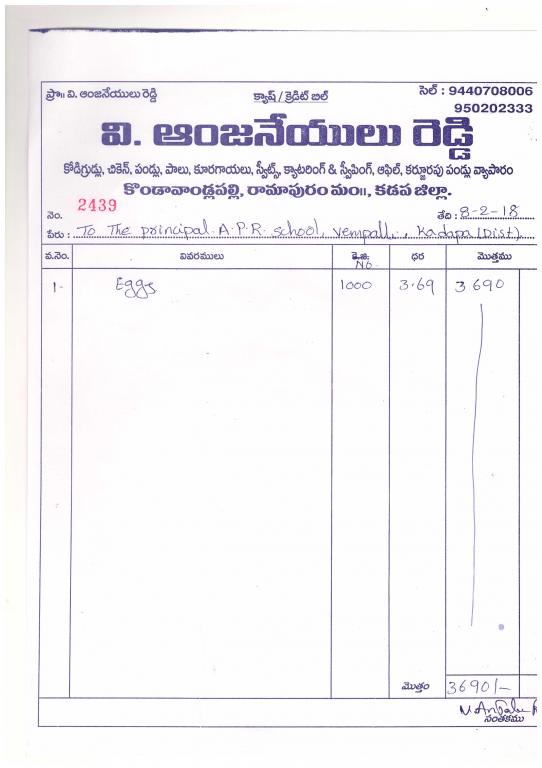 ప్రొ॥ వి. ఆంజనేయులు రెడ్డి క్యాష్ / క్రెడిట్ బిల్ సెల్ : 9440708006
950202333
వి. ఆంజనేయులు రెడ్డి
కోడిగ్రుడ్లు, చికెన్, పండ్లు, పాలు, కూరగాయలు, స్వీట్స్, క్యాటరింగ్ & స్వీపింగ్, ఆఫిల్, కర్జూరపు పండ్లు వ్యాపారం
కొండావాండ్లపల్లి, రామాపురం మం॥, కడప జిల్లా.
నెం. 2439 తేది : 8-2-18
పేరు : To The principal A.P.R. school, vempalli, Kadapa (Dist)
వ.నెం. వివరములు కె.జి. No ధర మొత్తము
1- Eggs 1000 3.69 3690
మొత్తం 3690/-
సంతకము